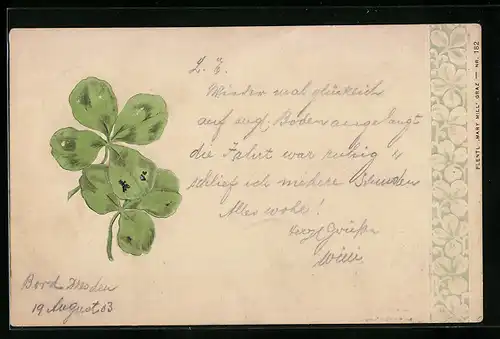 L. E.
Wieder mal glücklich
auf engl. Boden angelangt
die Fahrt war ruhig u
schlief ich mehrere Stunden
Alles wohl!
Grüße
Willi
Bord Dresden
19 August 03
PLENTL "MARY MILL" GRAZ — NR. 182